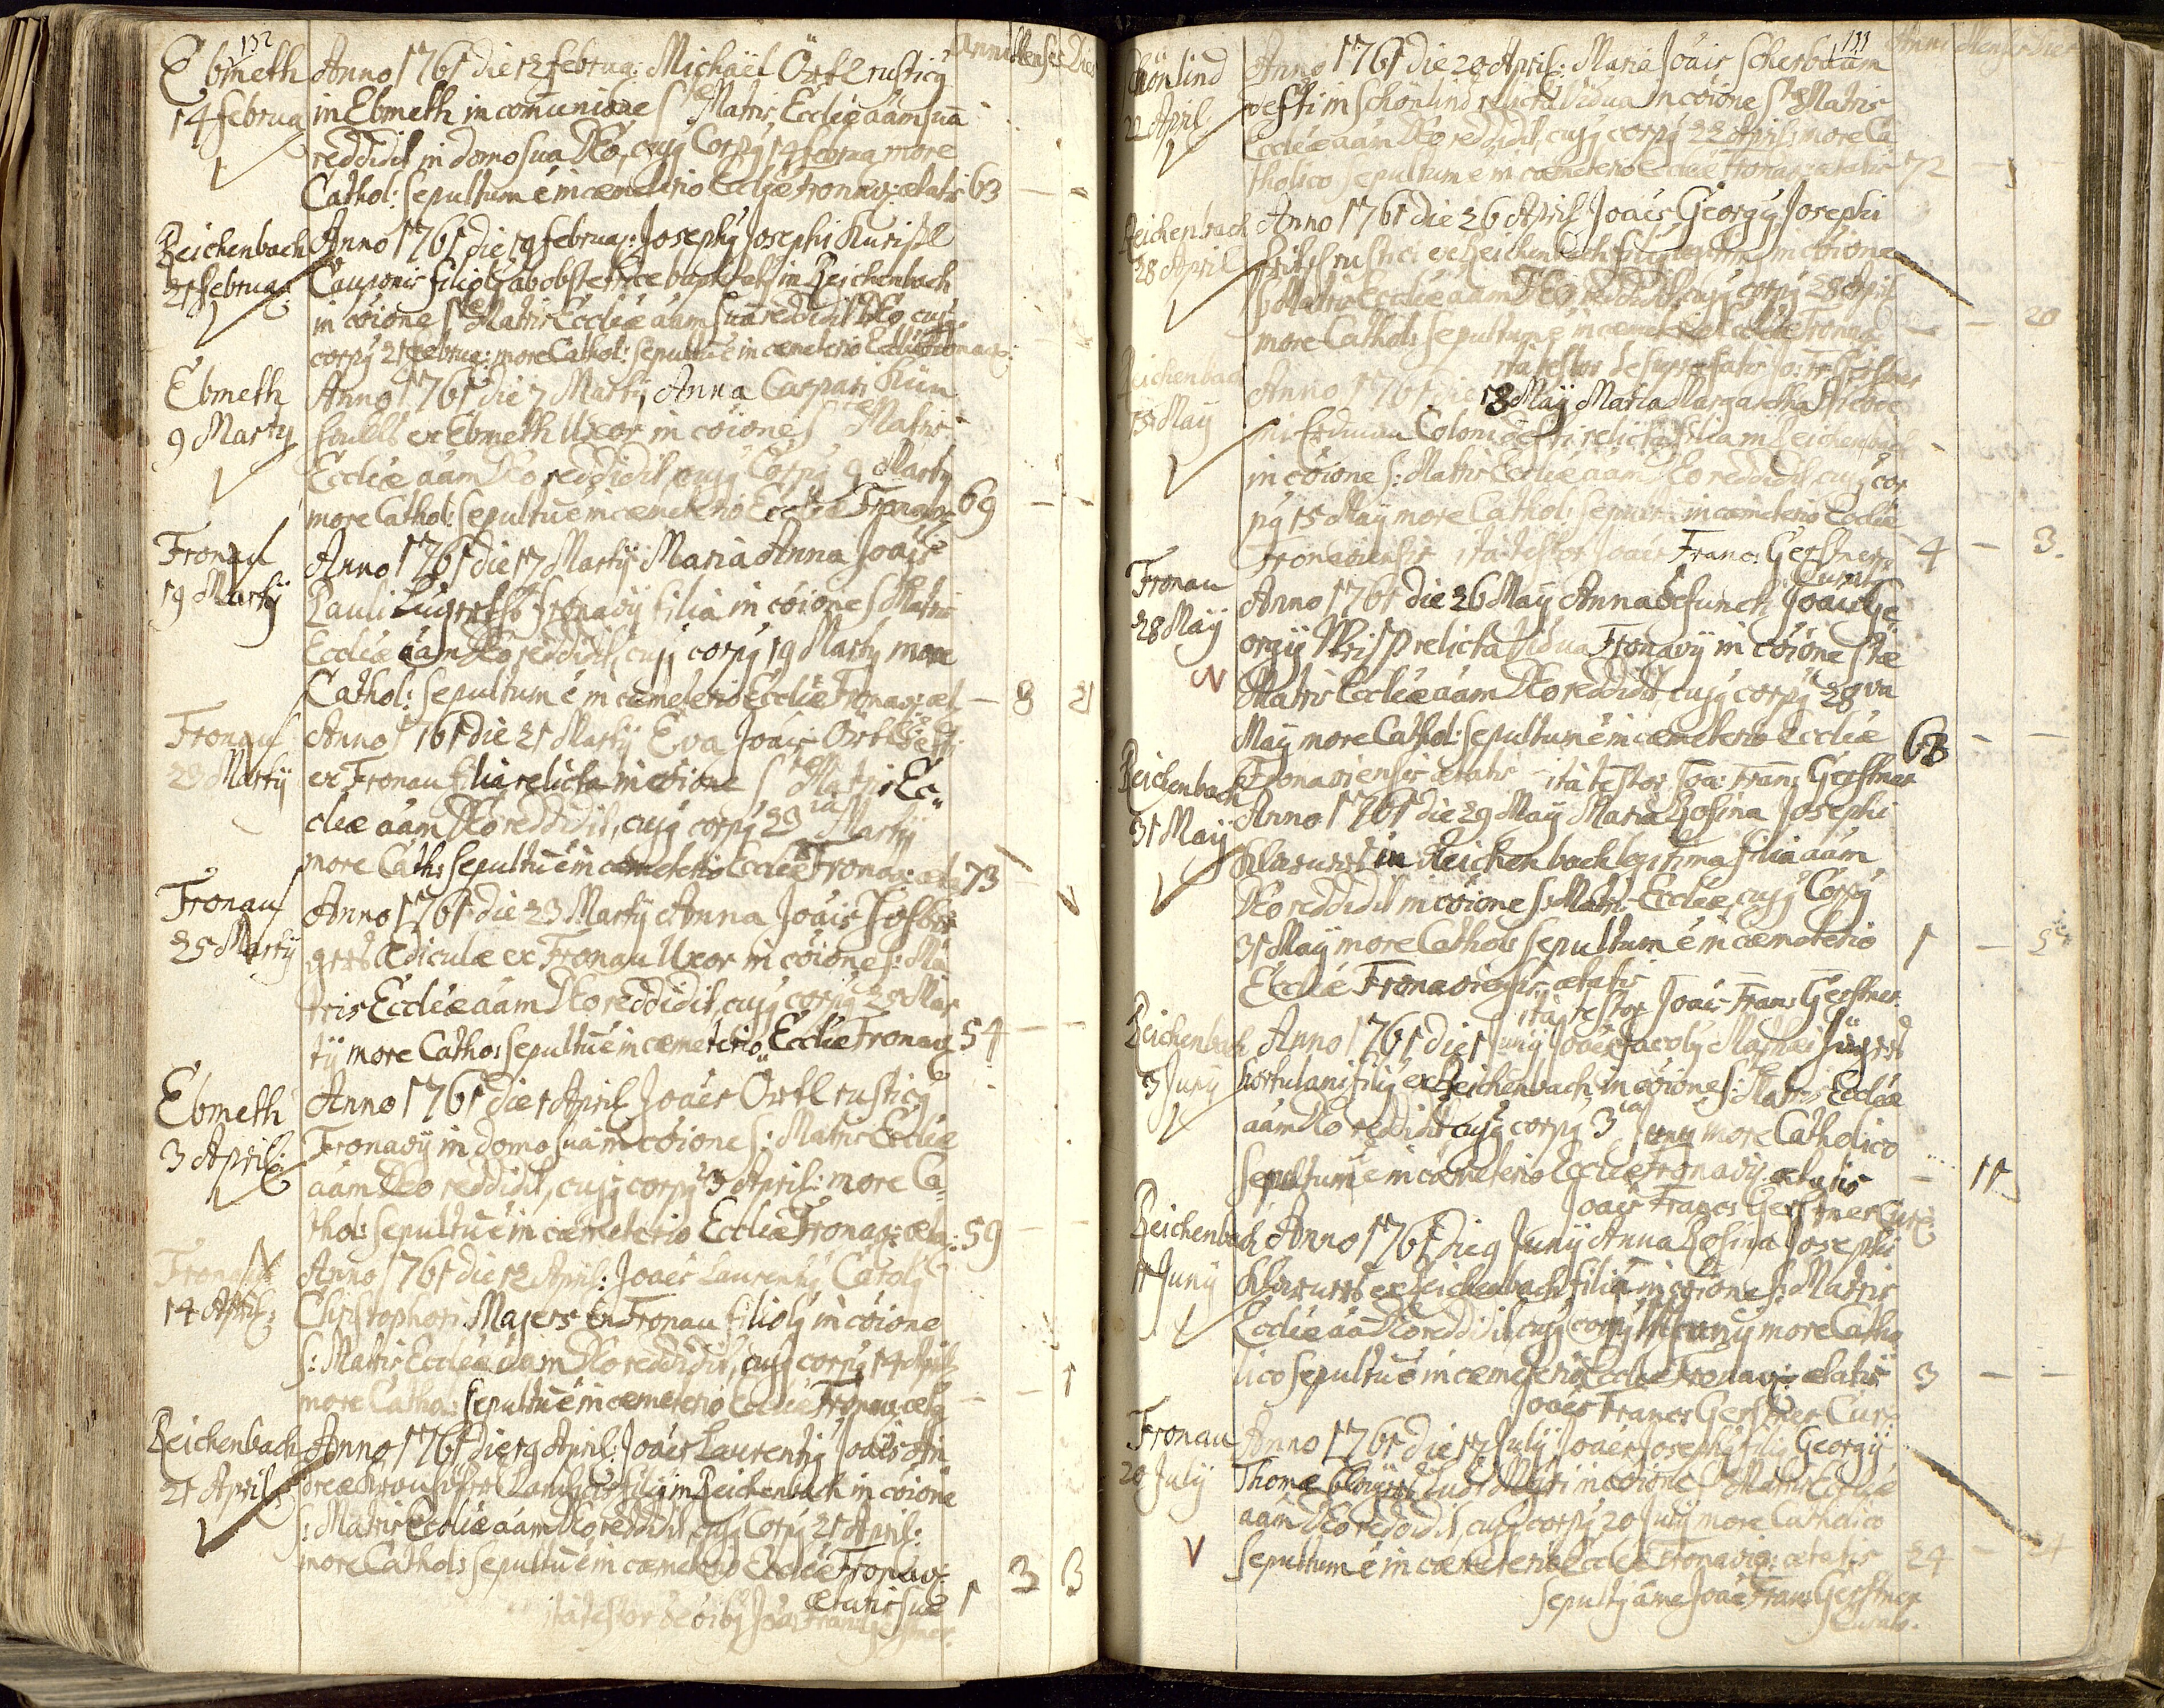 132
Anni Menses Dies
Ebmeth
14 februa
Anno 1761 die 12 februa: Michäel Örtl rusticq
in Ebmeth in comunione S Matris Eccliæ aam suā
reddidit in domo sua Deo, cujq Corpq 14 februa more
Cathol: sepultum ē in cæmeterio Eccliæ Fronav: ætatis 63 - -
Reichenbach
21 februa:
Anno 1761 die 19 februa: Josephq Josephi
Cauponis filiolq ab obstetrice baptizatq in Reichenbach
in coione S Matris Eccliæ aam suā reddidit Deo, cujq
corpq 21 februa: more Cathol: sepultū ē in cæmeterio Eccliæ Fronav:
Ebmeth
9 Martÿ
Anno 1761 die 7 Martÿ Anna Caspari
ex Ebmeth Uxor in coione S Matris
Eccliæ aam Deo reddidit, cujq Corpq 9 Martÿ
more Cathol: sepultū ē in cæmeterio Eccliæ Fronav: 69 - -
Fronau
19 Martÿ
Anno 1761 die 17 Martÿ Maria Anna Joais
Pauli Fronavÿ filia in coione S Matris
Eccliæ aam Deo reddidit, cujq corpq 19 Martÿ more
Cathol: sepultum ē in cæmeterio Eccliæ Fronav: æt - 8 21
Fronau
23 Martÿ
Anno 1761 die 21 Martÿ Eva Joais Örtl
ex Fronau filia relicta in coione S Matris Ec
cliæ aam Deo reddidit, cujq corpq 23 Martÿ
more Cath: sepultū ē in cæmeterio Eccliæ Fronav: æt 73
Fronau
25 Martÿ
Anno 1761 die 23 Martÿ Anna Joais
Ædiculæ ex Fronau Uxor in coione S: Ma
tris Eccliæ aam Deo reddidit, cujq corpq 25 Mar
tÿ more Cathol: sepultū ē in cæmeterio Eccliæ Fronav 54 - -
Ebmeth
3 April:
Anno 1761 die 1 April Joaes Örtl rusticq
Fronavÿ in domo sua in coione S: Matris Eccliæ
aam Deo reddidit, cujq corpq 3 April: more Ca
thol: sepultū ē in cæmeterio Eccliæ Fronav: æta: 59 - -
Fronau
14 April:
Anno 1761 die 12 April: Joaes Laurentÿ Carolq
Christophori Majers in Fronau filiolq in coione
S: Matris Eccliæ aam Deo reddidit, cujq corpq 14 April
more Cathol: sepultū ē in cæmeterio Eccliæ Fronav: æta - - 1
Reichenbach
21 April
Anno 1761 die 19 April: Joaes Laurentÿ Joais An
dreæ filiq in Reichenbach in coione
S: Matris Eccliæ aam Deo reddidit, cujq Corpq 21 April:
more Cathol: sepultū ē in cæmeterio Eccliæ Fronav:
ætatis suæ 1 3 3
ita testor de oibq Joa: Franc: Gerstner
133
Anni Menses Dies
Schönlind
22 April
Anno 1761 die 20 April: Maria Joais Scherbaum
defti in Schönlind relicta Vidua in coione S Matris
Eccliæ aam Deo reddidit, cujq corpq 22 April: more Ca
tholico sepultum ē in cæmeterio Eccliæ Fronav: ætatis 72 - -
Reichenbach
28 April
Anno 1761 die 26 April Joaes Georgÿ Josephi
rustici ex Reichenbach filiq legitimq in coione
S Matris Eccliæ aam Deo reddidit, cujq corpq 28 April
more Cathol: sepultum ē in cæmeterio Eccliæ Fronav: - - 20
ita testor de suprafatis Jo: Fr: Gerstner
Reichenbach
15 Maÿ
Anno 1761 die 13 Maÿ Maria Margaretha
Coloni defti relicta filia in Reichenbach
in coione S: Matris Eccliæ aam Deo reddidit, cujq cor
pq 15 Maÿ more Cathol: sepult: in cæmeterio Eccliæ
Fronaviensis ita testor Joaes Franc: Gerstner 4 - 3.
Curatq
Fronau
28 Maÿ
N
Anno 1761 die 26 Maÿ Anna defuncti Joais Ge
orgÿ relicta Vidua Fronavÿ in coione Stæ
Matris Eccliæ aam Deo reddidit, cujq corpq 28va
Maÿ more Cathol: sepultum ē in cæmeterio Eccliæ 63 - -
Fronaviensis ætatis ita testor Joa: Franc: Gerstner
Reichenbach
31 Maÿ
Anno 1761 die 29 Maÿ Maria Rosina Josephi
in Reichenbach legitima filia aam
Deo reddidit in coione S: Matris Eccliæ, cujq Corpq
31 Maÿ more Cathol: sepultum ē in cæmeterio 1 - 5
Eccliæ Fronaviensis ætatis
ita testor Joaes Franc: Gerstner
Reichenbach
3 Junÿ
Anno 1761 die 1 Junÿ Joaes Jacobq Mathæi
hortulani filiq ex Reichenbach in coione S: Matris Eccliæ
aam Deo reddidit cujq corpq 3 Junÿ more Catholico
sepultum ē in cæmeterio Eccliæ Fronavÿ ætatis - 11
Joaes Franc: Gerstner Cur:
Reichenbach
11 Junÿ
Anno 1761 die 9 Junÿ Anna Rosina Josephi
ex Reichenbach filia in coione S: Matris
Eccliæ aā Deo reddidit, cujq corpq 11 Junÿ more Catho
lico sepultū ē in cæmeterio Eccliæ Fronav: ætatis 3 - -
Joaes Franc: Gerstner Cur:
Fronau
20 July
V
Anno 1761 die 17 Julÿ Joaes Josephq filiq Georgÿ
Thomæ in coione S Matris Eccliæ
aam Deo reddidit, cujq corpq 20 July more Catholico
sepultum ē in cæmeterio Eccliæ Fronavie: ætatis 24 - 24
sepultq a me Joae Franc: Gerstner
Curato.